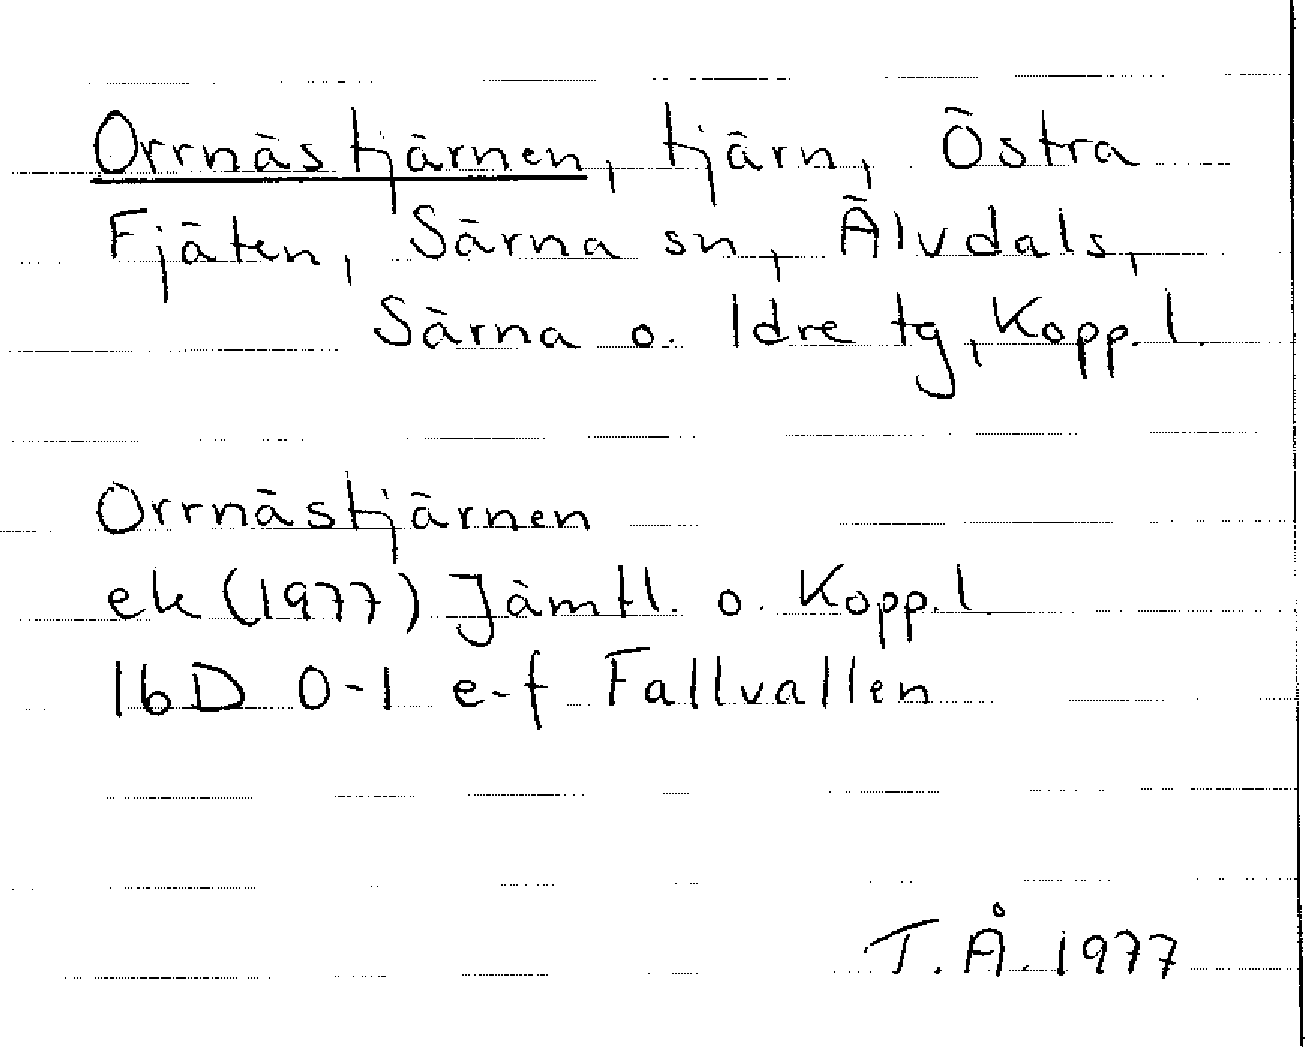 Orrnästjärnen, tjärn, Östra
Fjäten, Särna sn, Älvdals,
Särna o. Idre tg, Kopp. l.
Orrnästjärnen
ek (1977) Jämtl. o. Kopp. l.
16D 0-1 e-f Fallvallen
T. Å. 1977